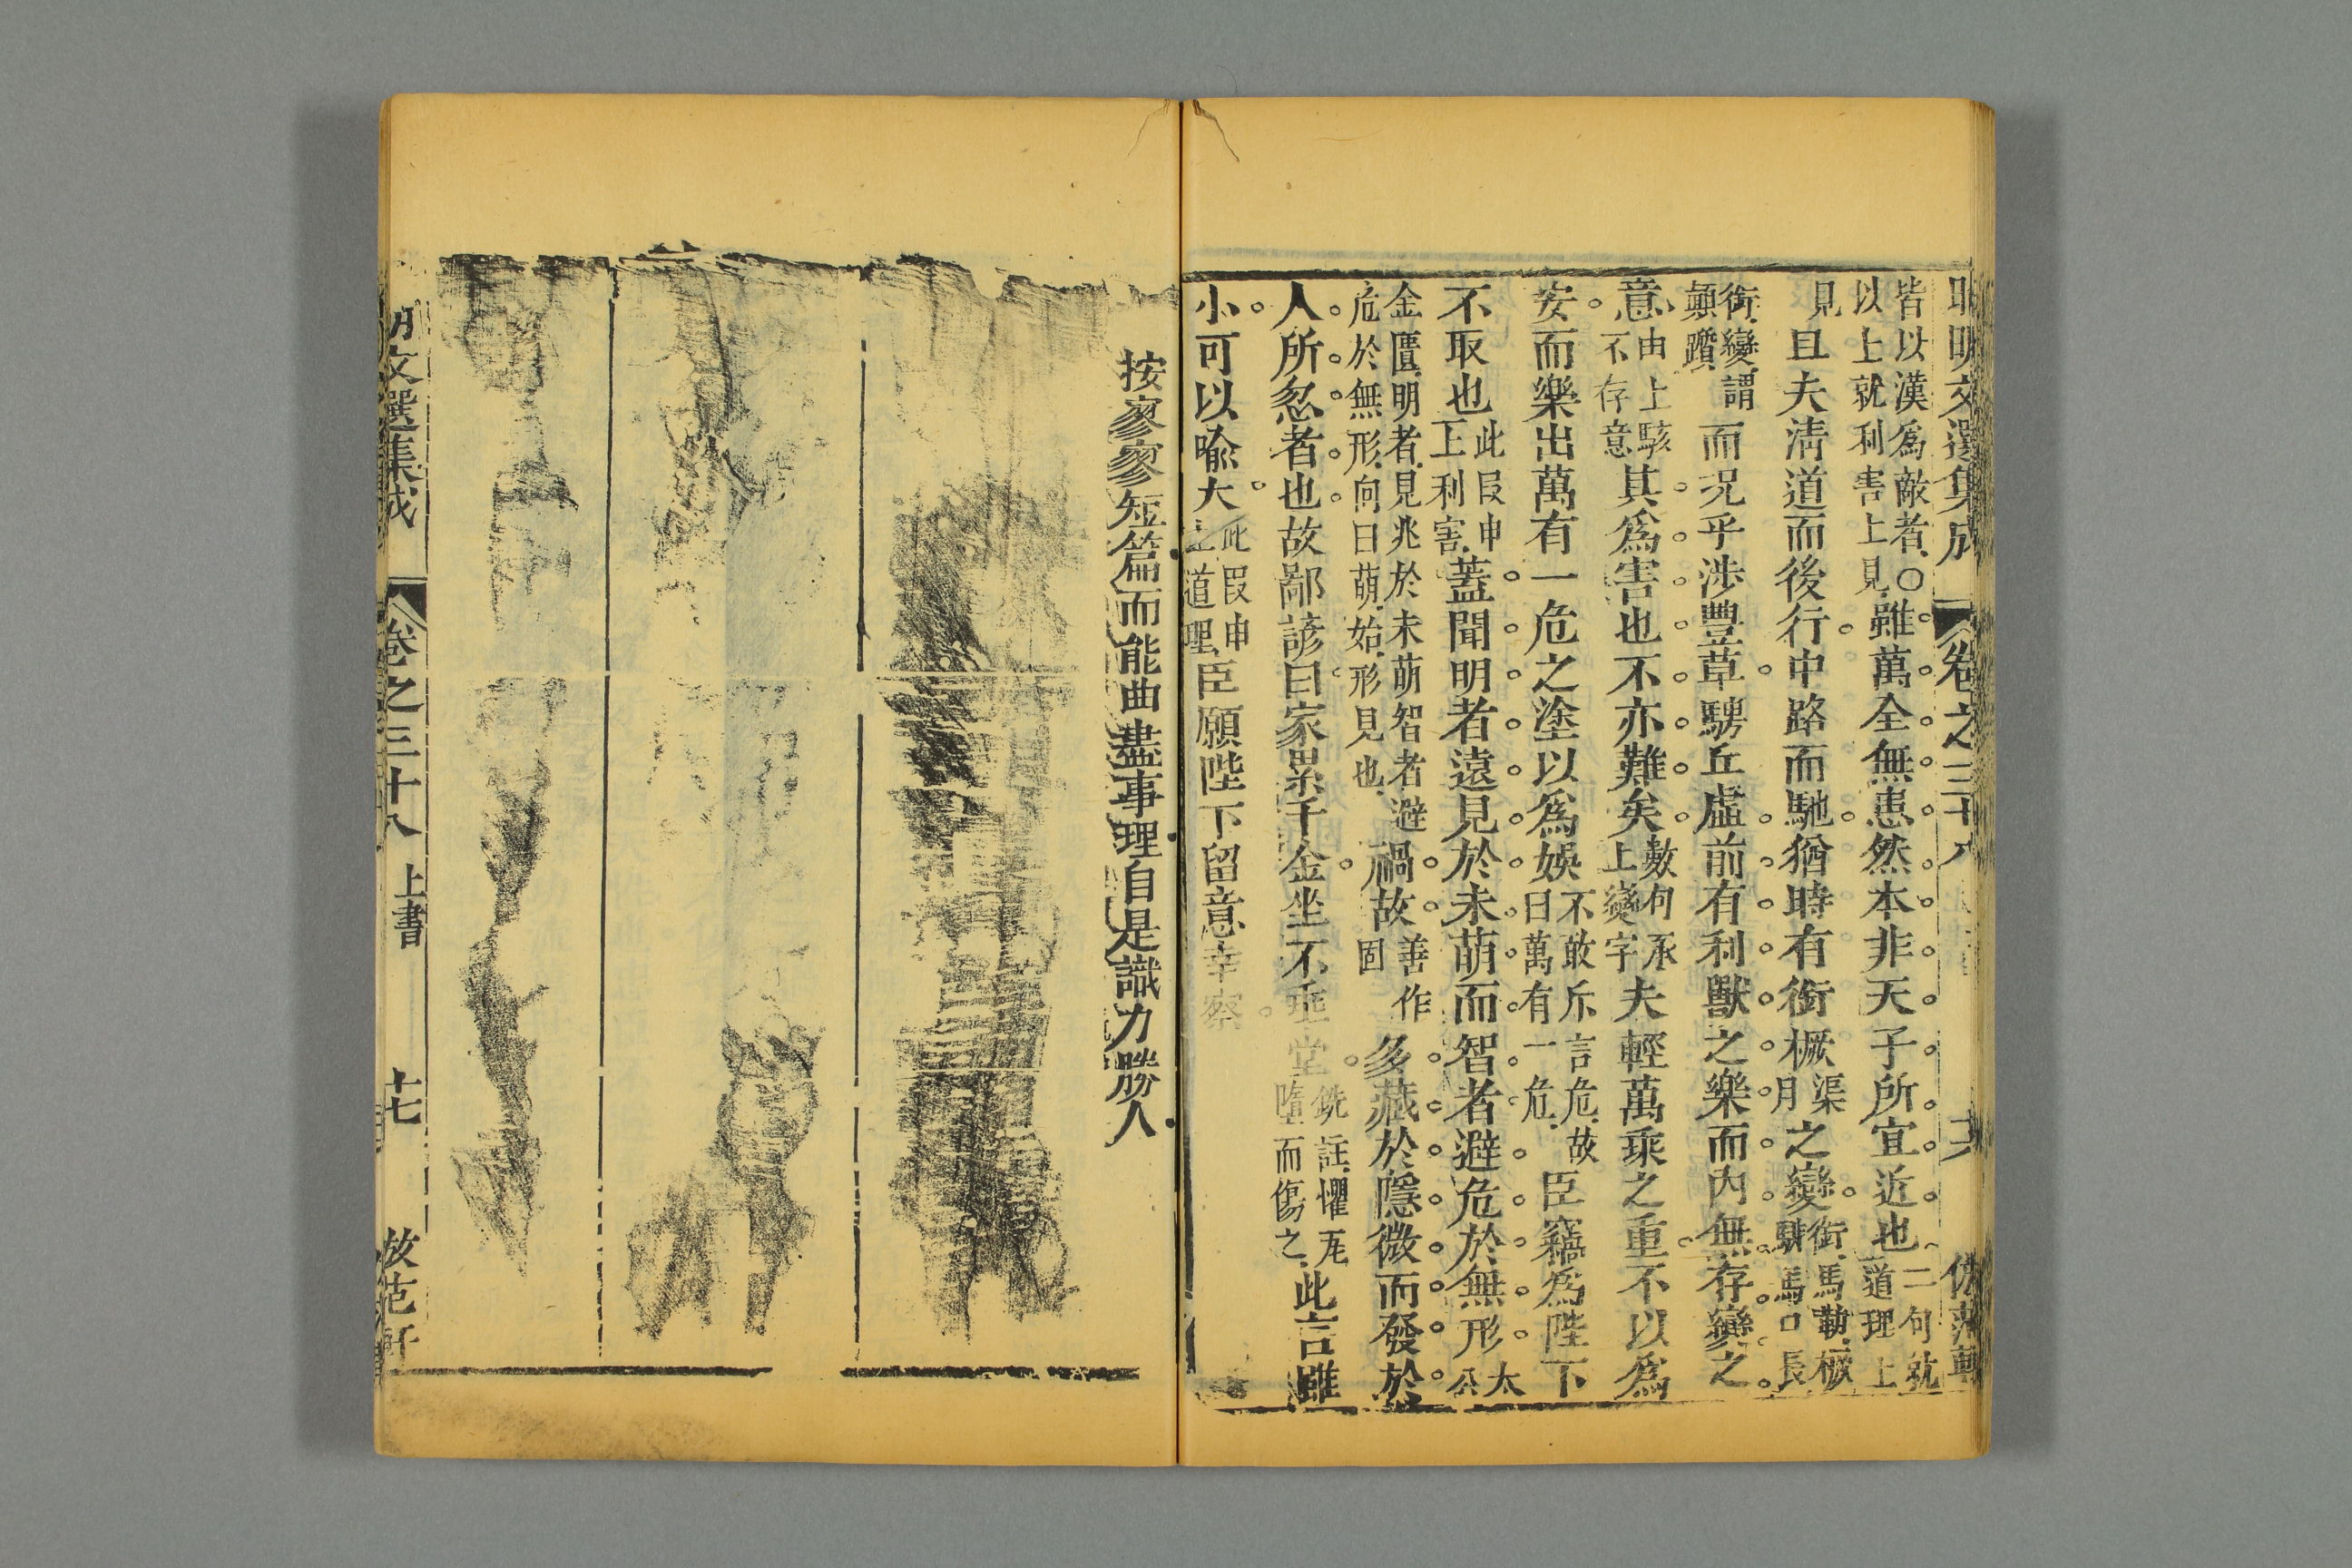 昭明文選集成 卷之三十八 共 倣范軒
皆以漢爲敵者○以上就利害上見雖萬全無患然本非天子所宜近也二句就道理上
見且夫淸道而後行中路而馳猶時有銜橛渠月之變銜馬勒橛騑馬口長
銜變謂顚躓而況乎涉豐草騁丘虛前有利獸之樂而內無存變之
意由上駭不存意其爲害也不亦難矣數句承上變字夫輕萬乘之重不以爲
安而樂出萬有一危之塗以爲娛不敢斥言危故曰萬有一危臣竊爲陛下
不取也此段申正利害蓋聞明者遠見於未萌而智者避危於無形太公
金匱明者見兆於未萌智者避危於無形向曰萌始形見也禍故善作固多藏於隱微而發於
人所忽者也故鄙諺曰家累千金坐不垂堂銑註懼瓦墮而傷之此言雖
小可以喻大此段申上道理臣願陛下留意幸察
按寥寥短篇而能曲盡事理自是識力勝人
明文選集成 卷之三十八 上書 十七 放范軒